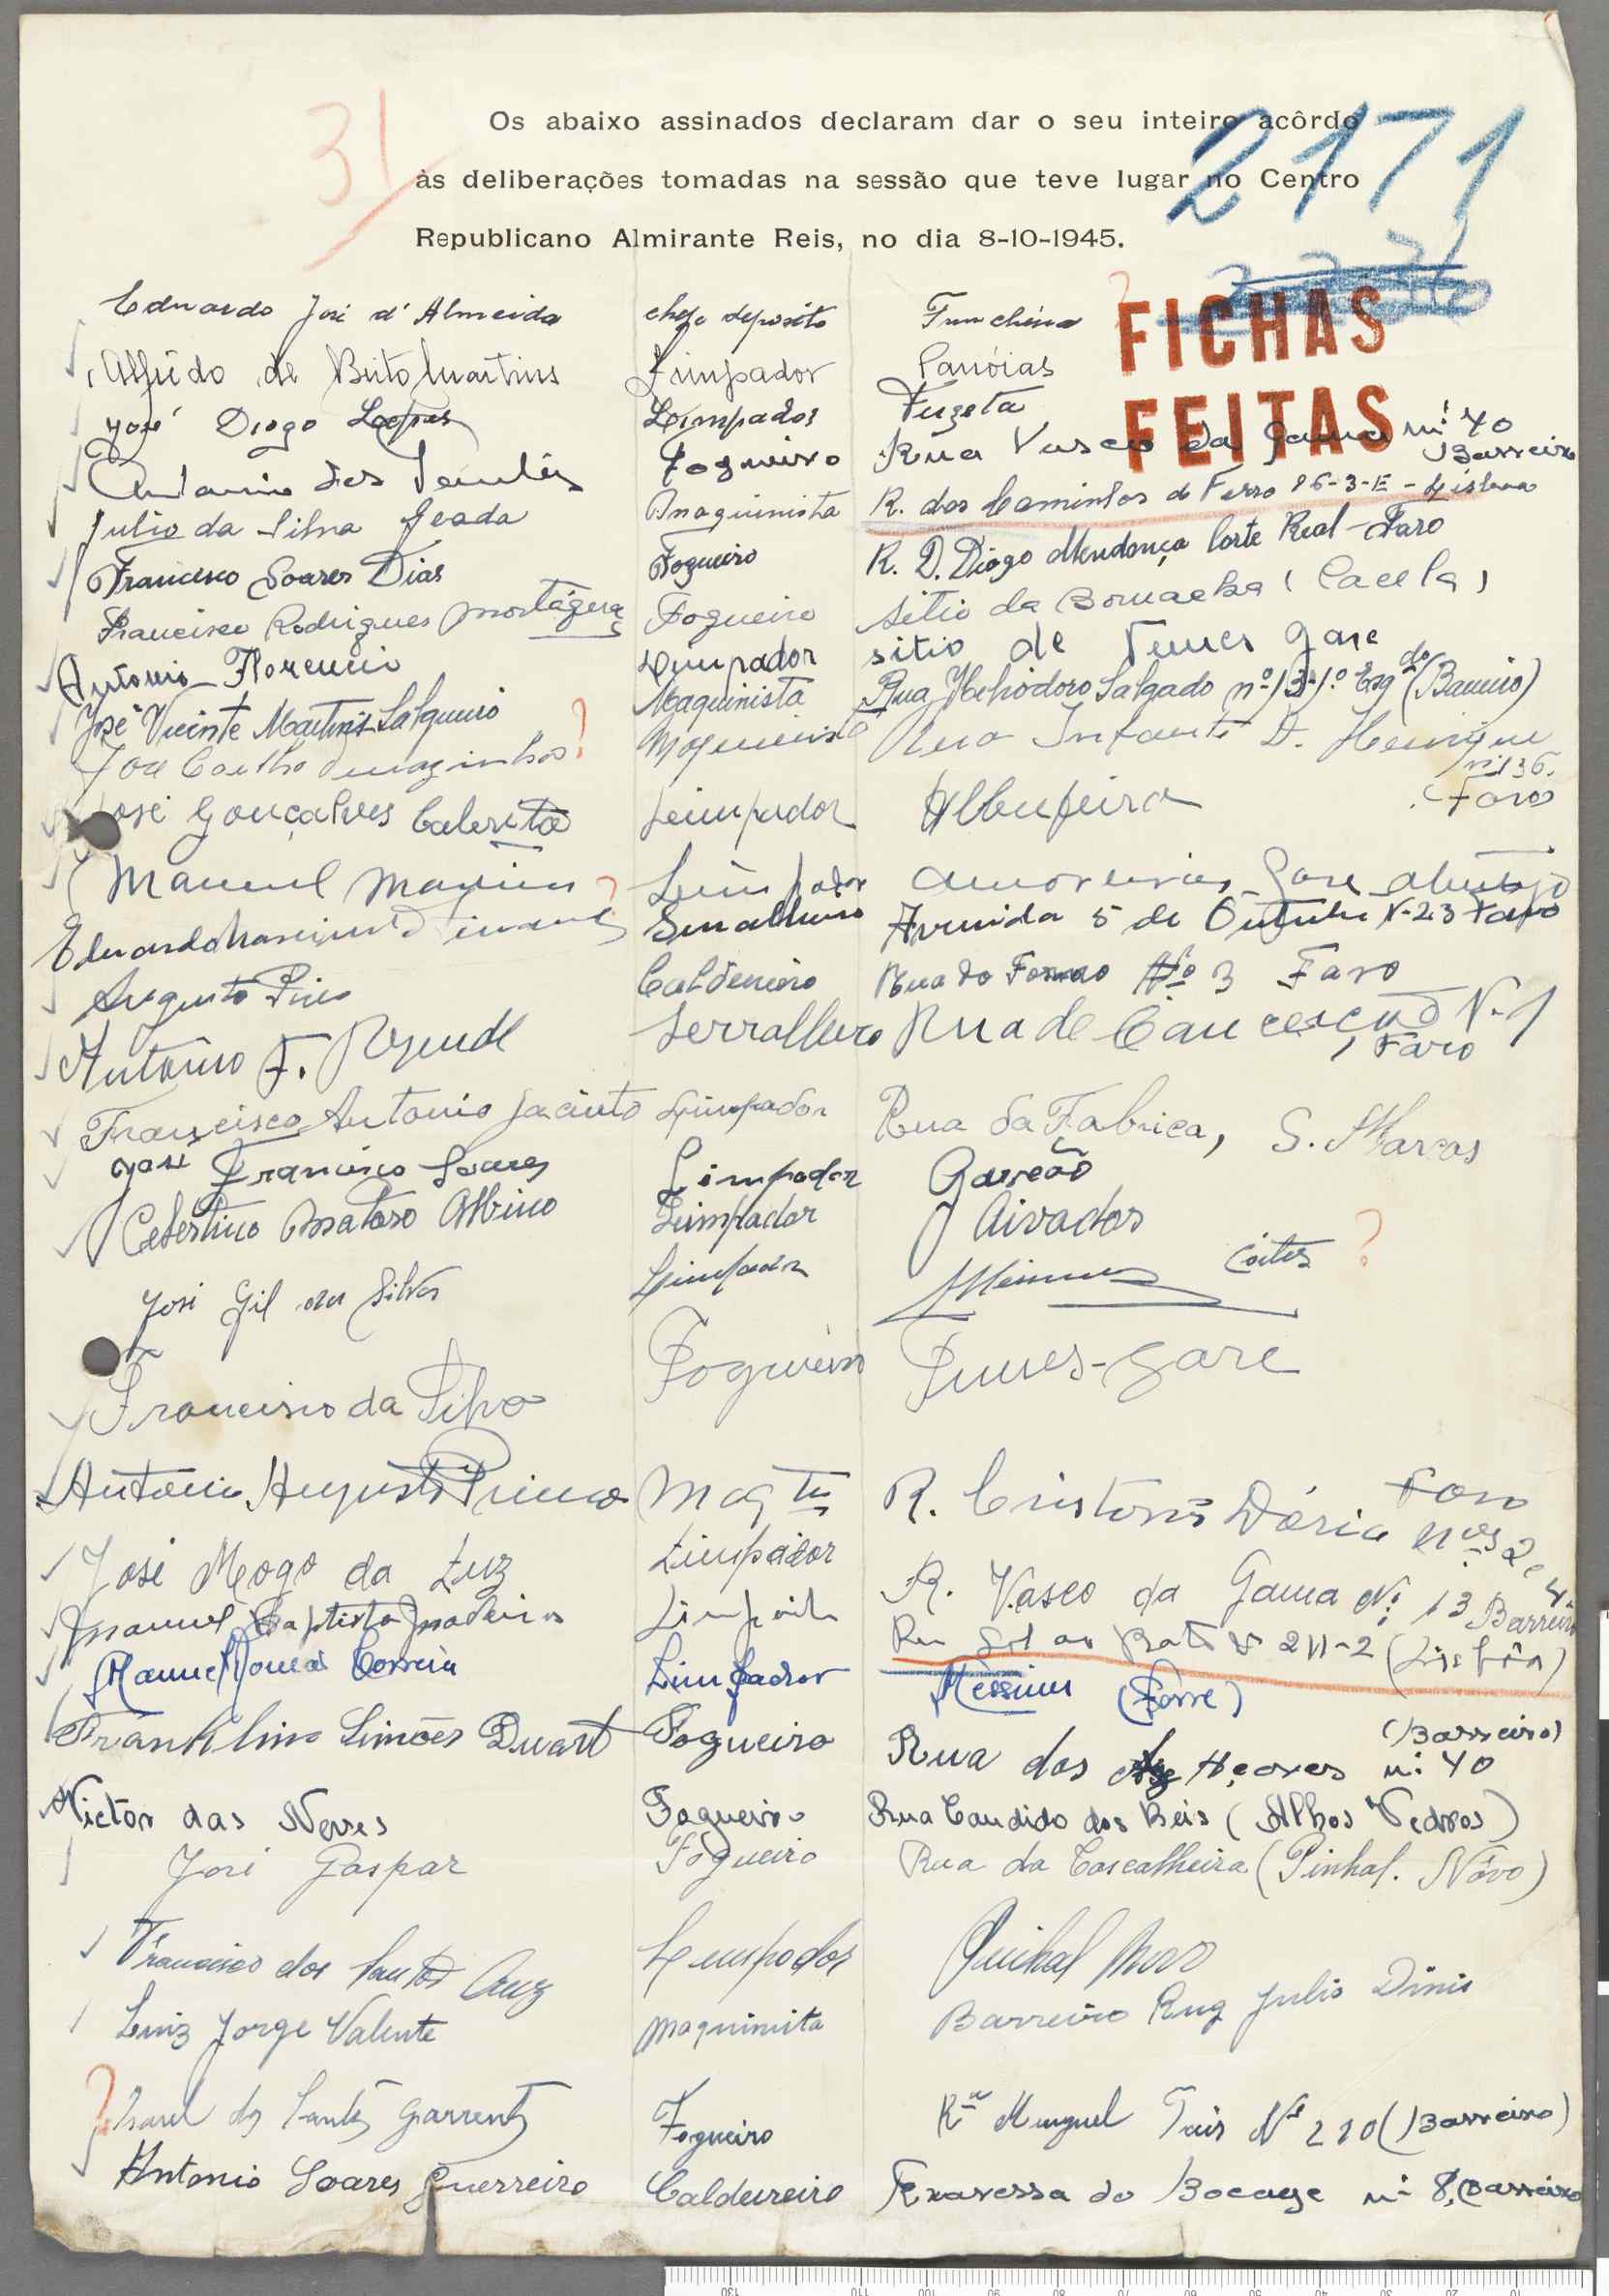 31
2171
Os abaixo assinados declaram dar o seu inteiro acôrdo
às deliberações tomadas na sessão que teve lugar no Centro
Republicano Almirante Reis, no dia 8-10-1945.
FICHAS
FEITAS
Eduardo José d'Almeida chefe deposito Funcheira
Alfredo de Brito Martins Limpador Panóias
José Diogo Lopes Limpador Fuzeta
Antonio dos Fogueiro Rua Vasco da Gama nº 40 Barreiro
Julio da Silva Geada Maquinista R. dos Caminhos de Ferro 86-3-E - Lisboa
Francisco Soares Dias Fogueiro R. D. Diogo Mendonça Corte Real - Faro
Francisco Rodrigues Mortágua Fogueiro Sitio da Bornacha (Cacela)
António Florencio Limpador sitio de Tunes Gare
José Vicente Martins Salgueiro Maquinista Rua Heliodoro Salgado nº 13-1º Esqdo (Barreiro)
José Coelho ? Maquinista Rua Infante D. Henrique nº 136. Faro
José Gonçalves Limpador Albufeira
Manuel Limpador Amoreiras Gare Alentejo
Eduardo ? Serralheiro Avenida 5 de Outubro Nº 23 Faro
Augusto Pires Caldeireiro Rua do Nº 3 Faro
António F. Serralheiro Rua de Nº 1, Faro
Francisco Antonio Jacinto Limpador Rua da Fabrica, S. Marcos
José Francisco Soares Limpador Garvão
Celestino Matoso Albino Limpador Aivados
José Gil da Silva Limpador Messines ?
Francisco da Silva Fogueiro Tunes-Gare
António Augusto Maqta R. Cristovão Dória nos 2 e 4 Faro
José Mogo da Luz Limpador R. Vasco da Gama Nº 13 Barreiro
Manuel Baptista Madeira Limpador Rua Sol ao Rato Nº 211-2 (Lisbôa)
Manuel Correia Limpador Messines (Torre)
Franklino Simões Duarte Fogueiro Rua dos Açores nº 40 (Barreiro)
Victor das Neves Fogueiro Rua Candido dos Reis (Alhos Vedros)
José Gaspar Fogueiro Rua da Cascalheira (Pinhal. Nôvo)
Francisco dos Santos Cruz Limpador Pinhal Novo
Luiz Jorge Valente Maquinista Barreiro Rua Julio Dinis
? dos Santos Fogueiro Rua Miguel Pais Nº 210 (Barreiro)
Antonio Soares Guerreiro Caldeireiro Travessa do Bocage nº 8, Barreiro